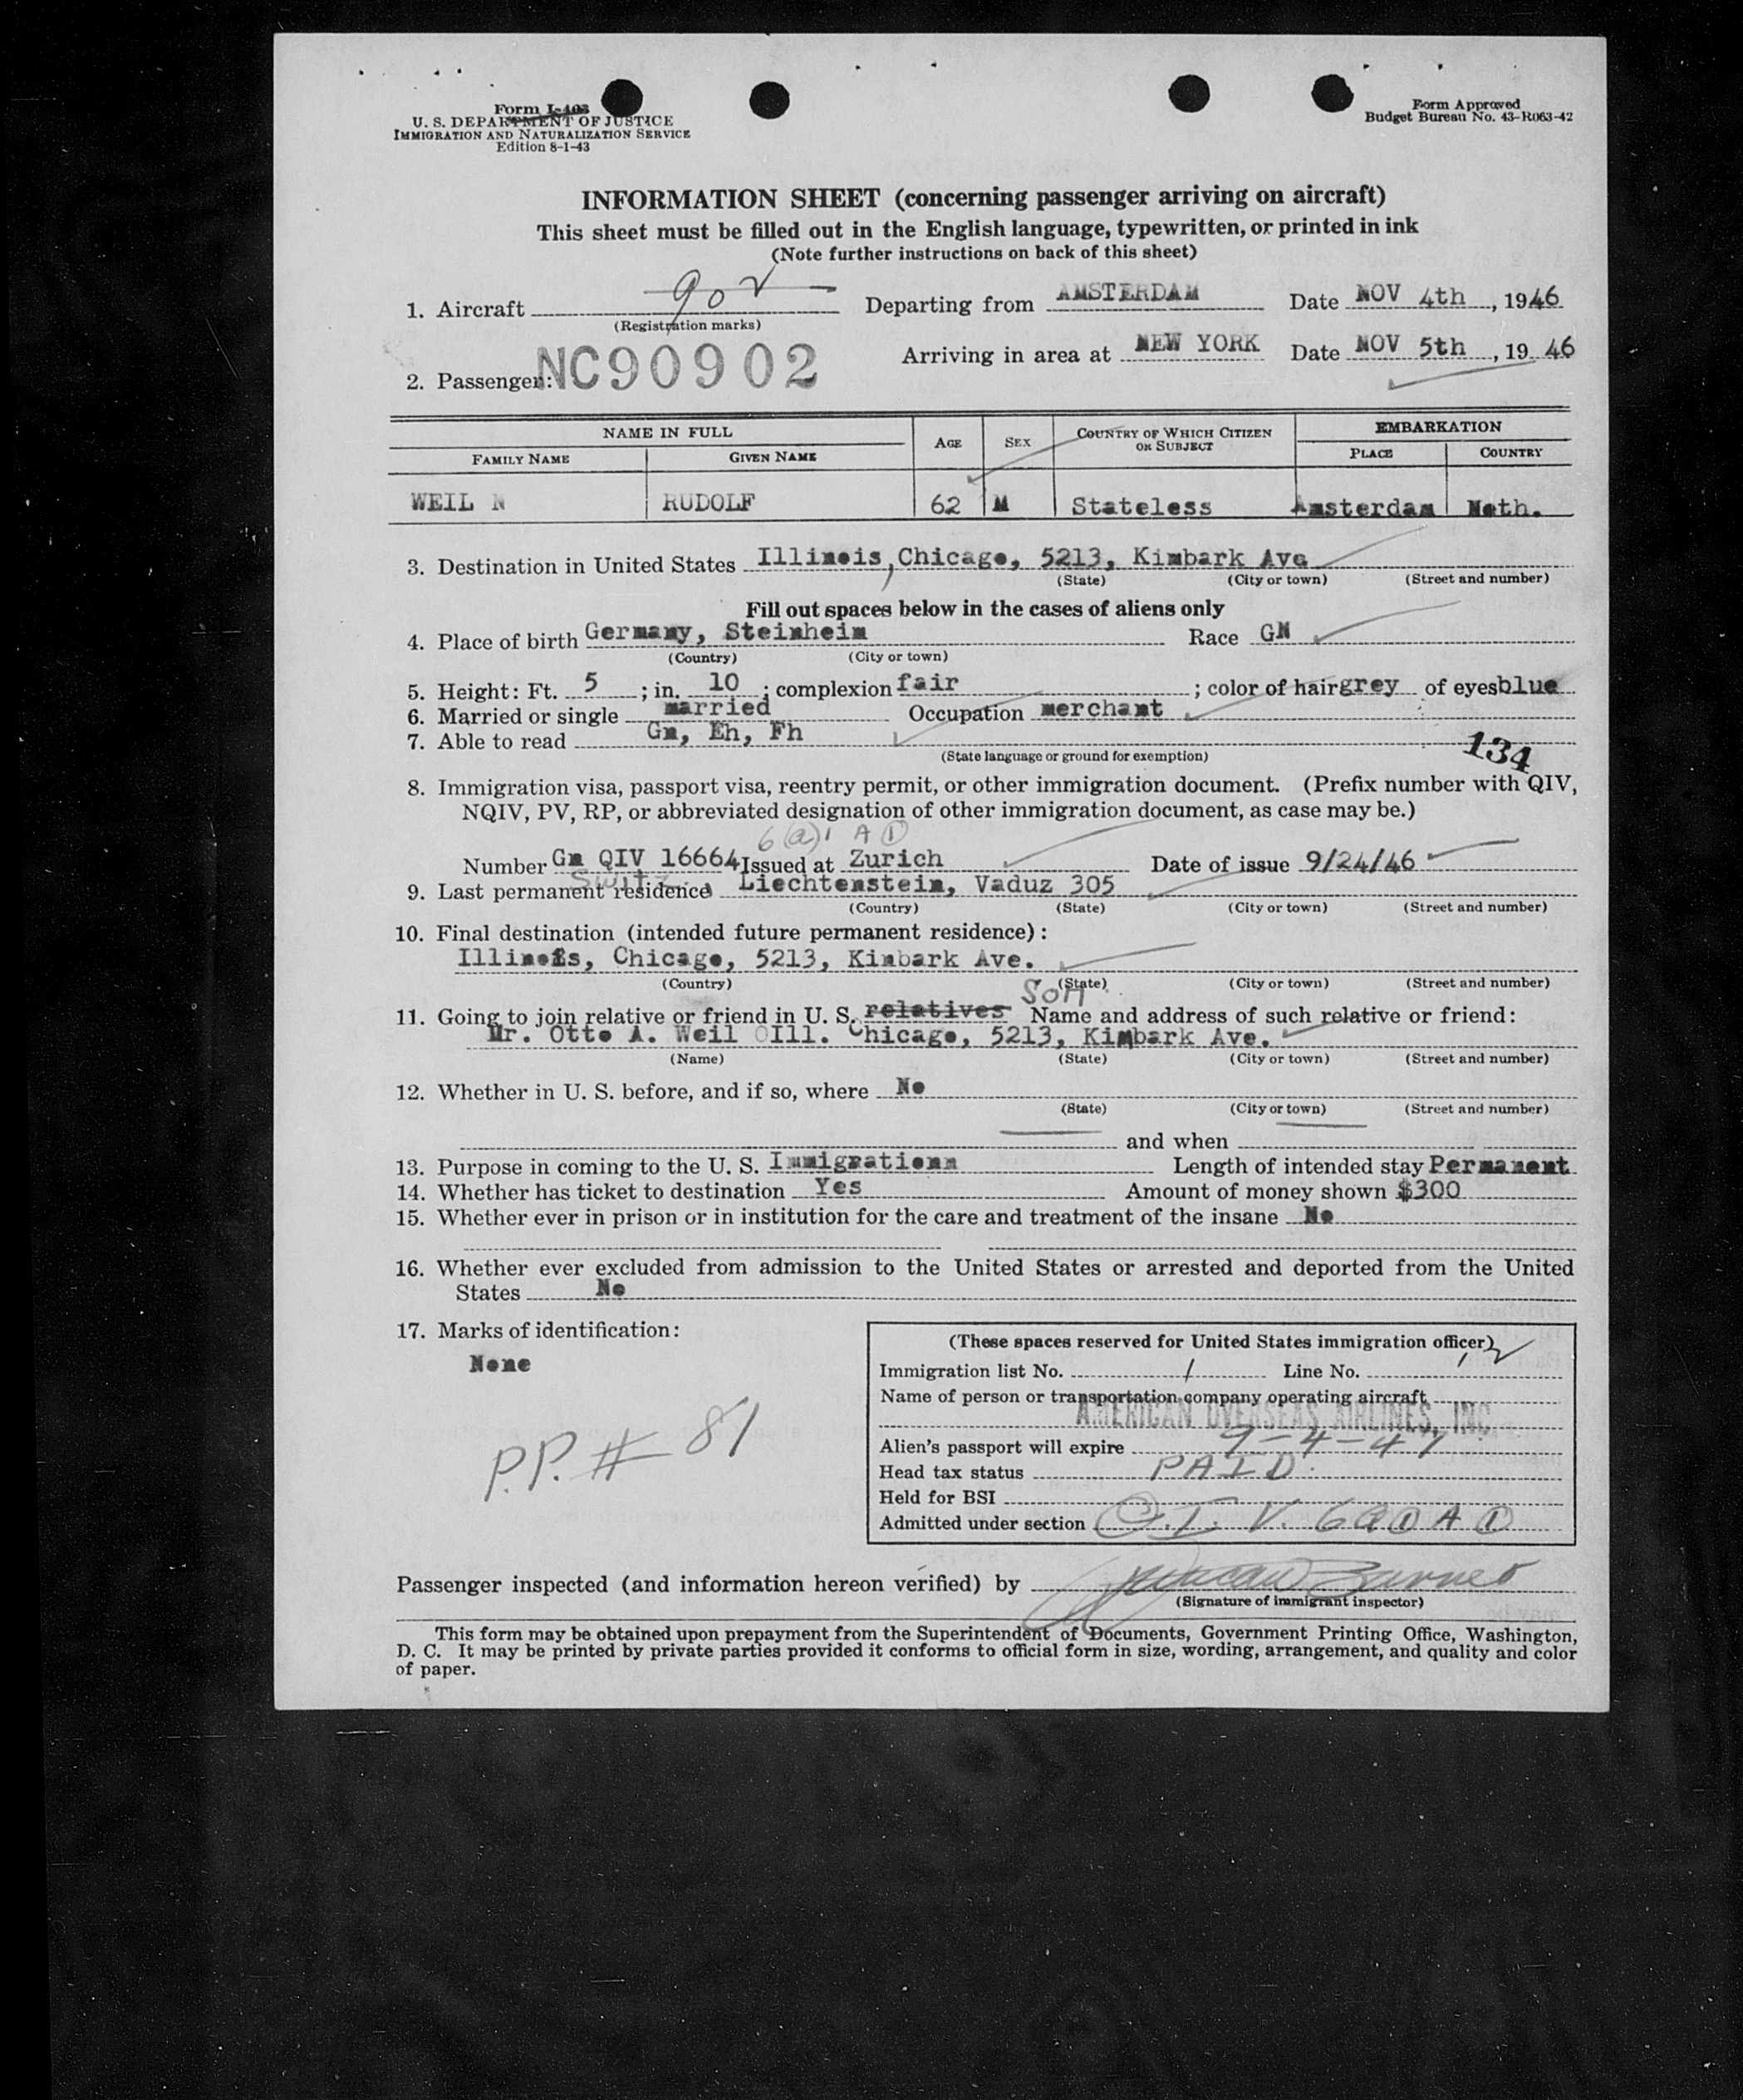 Form I-403
U. S. DEPARTMENT OF JUSTICE
IMMIGRATION AND NATURALIZATION SERVICE
Edition 8-1-43
Form Approved
Budget Bureau No. 43-R063-42
INFORMATION SHEET (concerning passenger arriving on aircraft)
This sheet must be filled out in the English language, typewritten, or printed in ink
(Note further instructions on back of this sheet)
1. Aircraft 902 Departing from AMSTERDAM Date NOV 4th, 1946
(Registration marks)
Arriving in area at NEW YORK Date NOV 5th, 19 46
2. Passenger: NC90902
NAME IN FULL AGE SEX COUNTRY OF WHICH CITIZEN OR SUBJECT EMBARKATION
FAMILY NAME GIVEN NAME PLACE COUNTRY
WEIL N RUDOLF 62 M Stateless Amsterdam Neth.
3. Destination in United States Illinois, Chicago, 5213, Kimbark Ave
(State) (City or town) (Street and number)
Fill out spaces below in the cases of aliens only
4. Place of birth Germany, Steinheim Race GN
(Country) (City or town)
5. Height: Ft. 5 ; in. 10 ; complexion fair ; color of hair grey of eyes blue
6. Married or single married Occupation merchant
7. Able to read Gn, Eh, Fh
(State language or ground for exemption)
134
8. Immigration visa, passport visa, reentry permit, or other immigration document. (Prefix number with QIV,
NQIV, PV, RP, or abbreviated designation of other immigration document, as case may be.)
6(a)1 A 1
Number Gn QIV 16664 Issued at Zurich Date of issue 9/24/46
Switz
9. Last permanent residence Liechtenstein, Vaduz 305
(Country) (State) (City or town) (Street and number)
10. Final destination (intended future permanent residence):
Illinois, Chicago, 5213, Kimbark Ave.
(Country) (State) (City or town) (Street and number)
SON
11. Going to join relative or friend in U. S. relatives Name and address of such relative or friend:
Mr. Otto A. Weil Ill. Chicago, 5213, Kimbark Ave.
(Name) (State) (City or town) (Street and number)
12. Whether in U. S. before, and if so, where No
(State) (City or town) (Street and number)
and when
13. Purpose in coming to the U. S. Immigrationn Length of intended stay Permanent
14. Whether has ticket to destination Yes Amount of money shown $300
15. Whether ever in prison or in institution for the care and treatment of the insane No
16. Whether ever excluded from admission to the United States or arrested and deported from the United
States No
17. Marks of identification:
None
P.P. # 81
(These spaces reserved for United States immigration officer)
Immigration list No. 1 Line No. 12
Name of person or transportation company operating aircraft
AMERICAN OVERSEAS AIRLINES, INC.
Alien's passport will expire 9-4-47
Head tax status PAID
Held for BSI
Admitted under section Q.I.V. 6 a 1 A 1
Passenger inspected (and information hereon verified) by
(Signature of immigrant inspector)
This form may be obtained upon prepayment from the Superintendent of Documents, Government Printing Office, Washington,
D. C. It may be printed by private parties provided it conforms to official form in size, wording, arrangement, and quality and color
of paper.